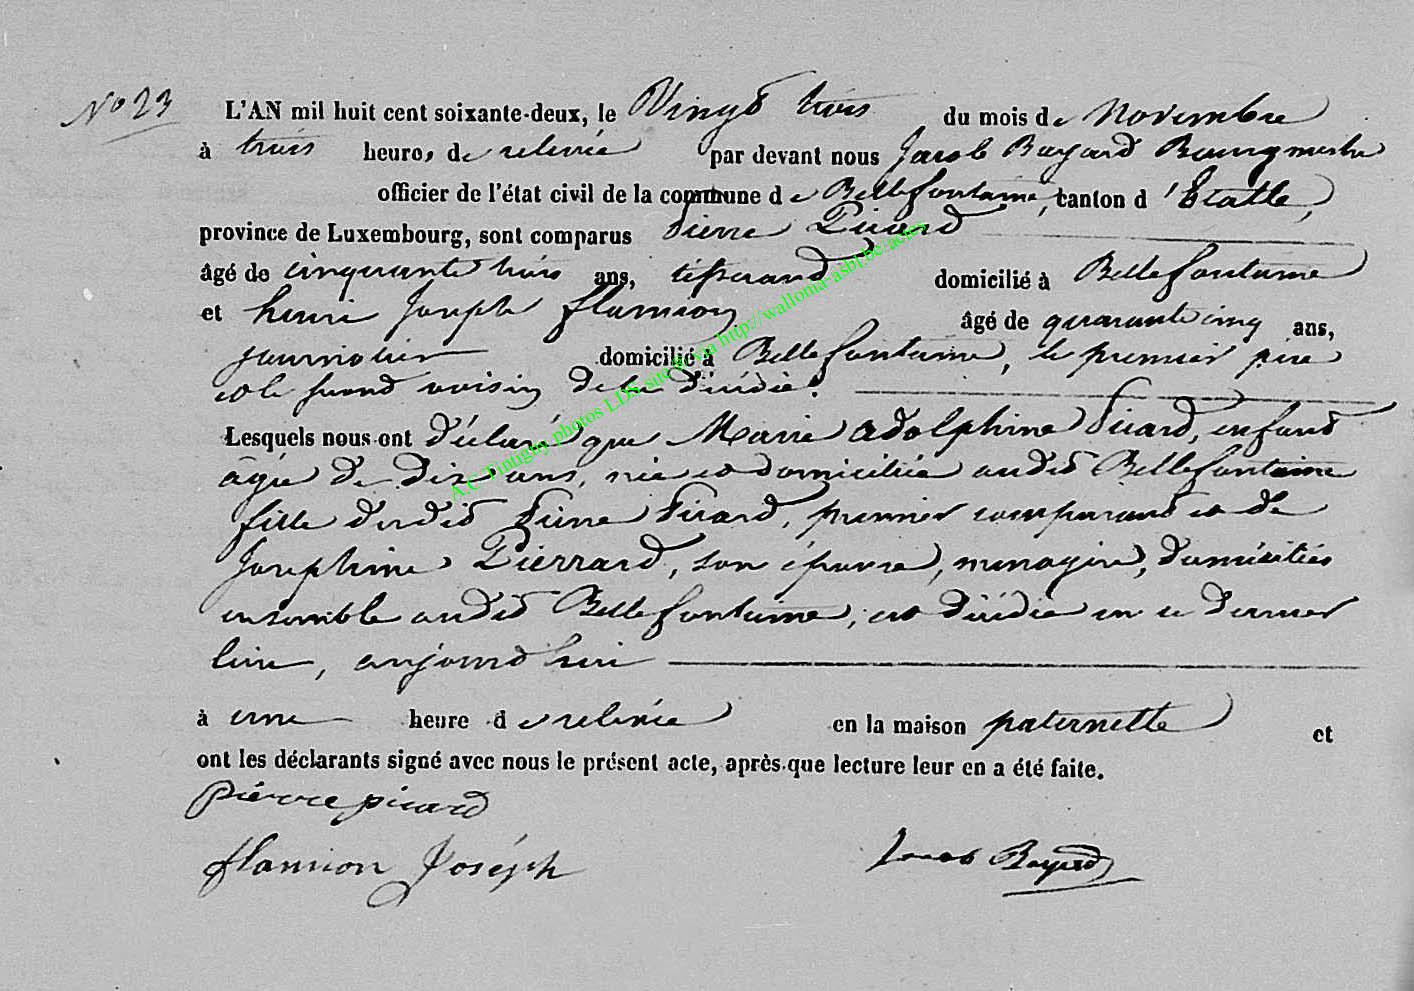 No 23
L'AN mil huit cent soixante-deux, le Vingt trois du mois de Novembre
à trois heures de relevée par devant nous Jacob Bayard Bourgmestre
officier de l'état civil de la commune de Bellefontaine, canton d'Etalle,
province de Luxembourg, sont comparus Pierre Picard
âgé de cinquante trois ans, tisserand domicilié à Bellefontaine
et henri Joseph flamion âgé de quarante cinq ans,
journalier domicilié à Bellefontaine, le premier père
et le second voisin de la décédée.
Lesquels nous ont déclaré que Marie Adolphine Picard, enfant
âgée de dix ans, née et domiciliée audit Bellefontaine
fille dudit Pierre Picard, premier comparant et de
Josephine Pierrard, son épouse, menagère, domiciliés
ensemble audit Bellefontaine, est décédée en ce dernier
lieu, aujourd'hui
à une heure de relevée en la maison paternelle et
ont les déclarants signé avec nous le présent acte, après que lecture leur en a été faite.
pierre picard
flamion Joséph Jacob Bayard
A.C Tintigny photos LDS site via http://wallonia-asbl.be/actes